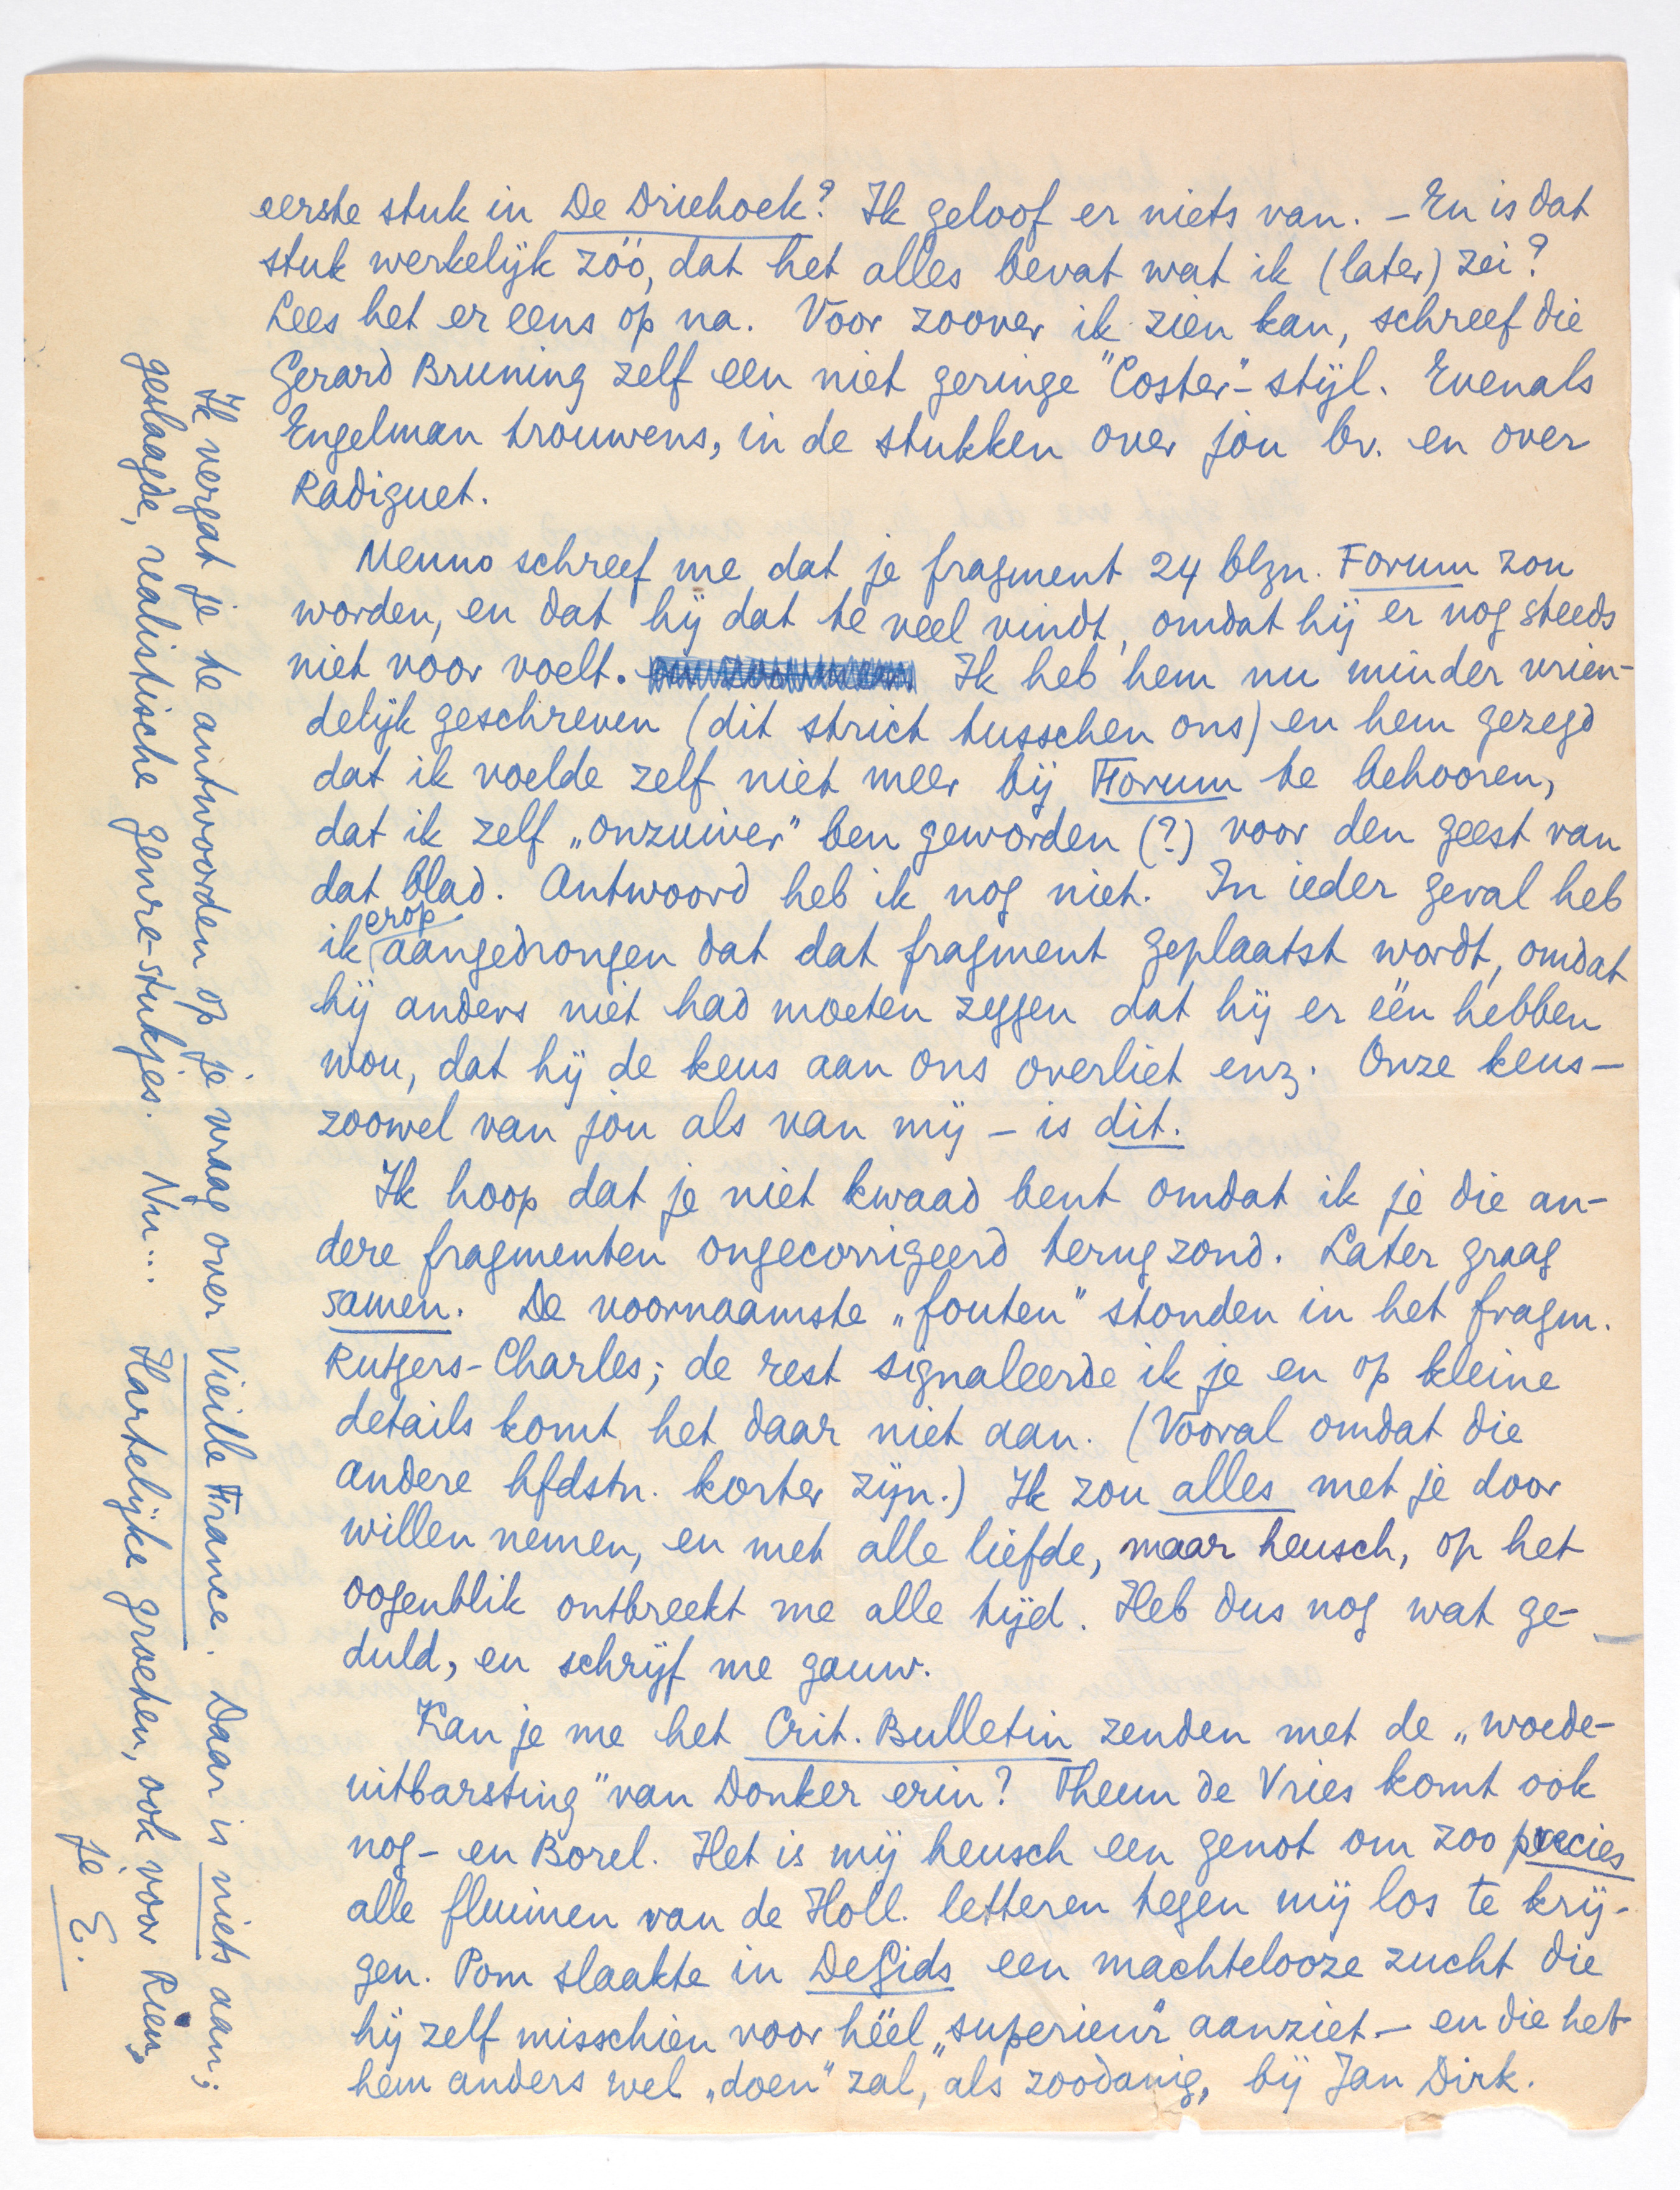 eerste stuk in De Driehoek? Ik geloof er niets van. – En is dat
stuk werkelijk zóó, dat het alles bevat wat ik (later) zei?
Lees het er eens op na. Voor zoover ik zien kan, schreef die
Gerard Bruning zelf een niet geringe "Coster"-stijl. Evenals
Engelman trouwens, in de stukken over jou bv. en over
Radiguet.
Menno schreef me dat je fragment 24 blzn. Forum zou
worden, en dat hij dat te veel vindt, omdat hij er nog steeds
niet voor voelt. Ik heb hem nu minder vrien-
delijk geschreven (dit strict tusschen ons) en hem gezegd
dat ik voelde zelf niet meer bij Forum te behooren,
dat ik zelf „onzuiver" ben geworden (?) voor den geest van
dat blad. Antwoord heb ik nog niet. In ieder geval heb
ik erop aangedrongen dat dat fragment geplaatst wordt, omdat
hij anders niet had moeten zeggen dat hij er één hebben
wou, dat hij de keus aan ons overliet enz. Onze keus –
zoowel van jou als van mij – is dit.
Ik hoop dat je niet kwaad bent omdat ik je die an-
dere fragmenten ongecorrigeerd terug zond. Later graag
samen. De voornaamste „fouten" stonden in het fragm.
Rutgers-Charles; de rest signaleerde ik je en op kleine
details komt het daar niet aan. (Vooral omdat die
andere hfdstn. korter zijn.) Ik zou alles met je door
willen nemen, en met alle liefde, maar heusch, op het
oogenblik ontbreekt me alle tijd. Heb dus nog wat ge-
duld, en schrijf me gauw.
Kan je me het Crit. Bulletin zenden met de „woede-
uitbarsting" van Donker erin? Theun de Vries komt ook
nog – en Borel. Het is mij heusch een genot om zoo precies
alle fluimen van de Holl. letteren tegen mij los te krij-
gen. Pom slaakte in De Gids een machtelooze zucht die
hij zelf misschien voor héél „superieur" aanziet – en die het
hem anders wel „doen" zal, als zoodanig, bij Jan Dirk.
Ik vergat je te antwoorden op je vraag over Vieille France. Daar is niets aan;
geslaagde, realistische genre-stukjes. Nu... Hartelijke groeten, ook voor Rien,
je E.